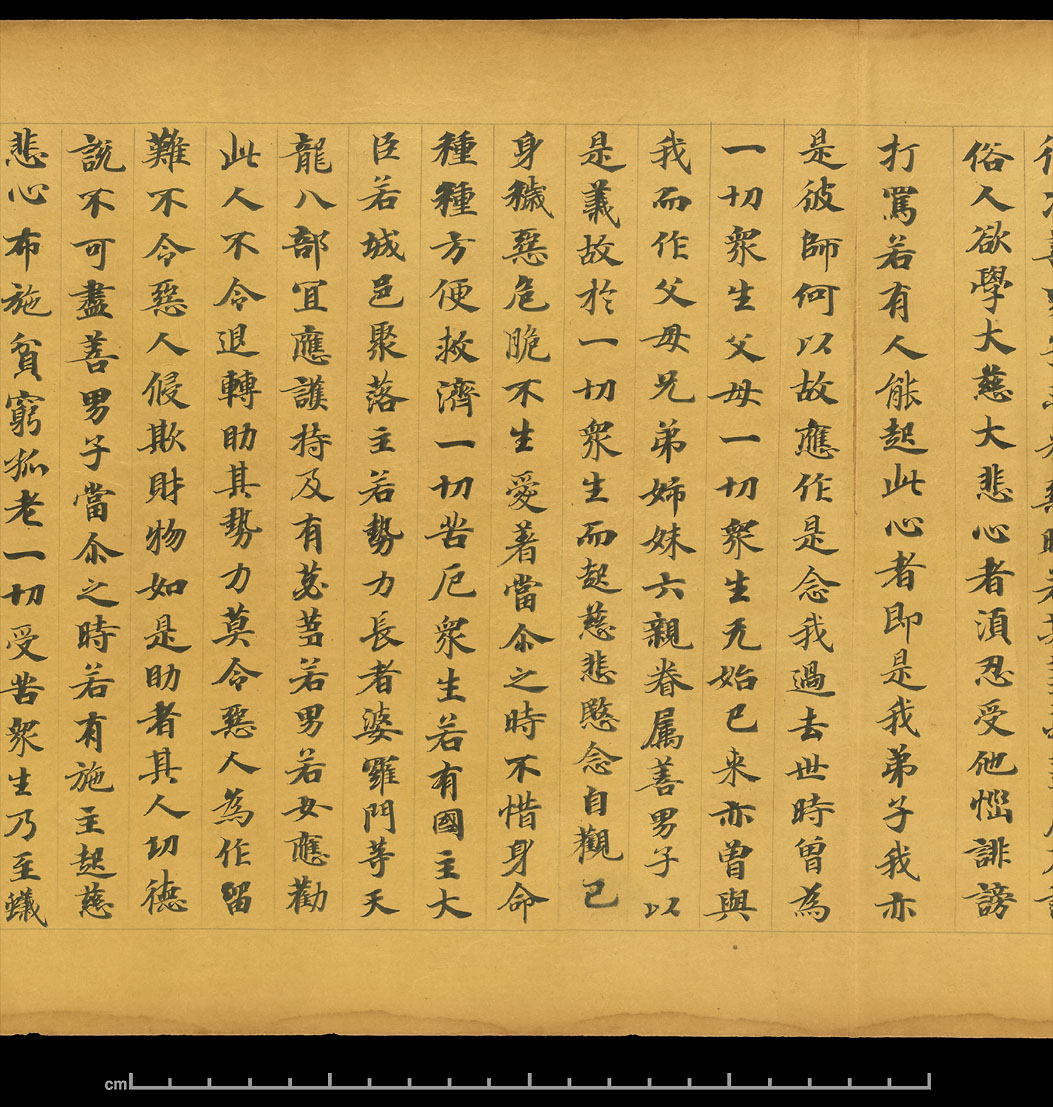 俗人欲學大慈大悲心者須忍受他惱誹謗
打罵若有人能起此心者即是我弟子我亦
是彼師何以故應作是念我過去世時曾為
一切衆生父母一切衆生无始已来亦曾與
我而作父母兄弟姉妹六親眷属善男子以
是義故於一切衆生而起慈悲愍念自觀己
身穢惡危脆不生愛著當尒之時不惜身命
種種方便救濟一切苦厄衆生若有國主大
臣若城邑聚落主若勢力長者婆羅門等天
龍八部冝應護持及有苾蒭若男若女應勸
此人不令退轉助其勢力莫令惡人為作留
難不令惡人侵欺財物如是助者其人功德
說不可盡善男子當尒之時若有施主起慈
悲心布施貧窮孤老一切受苦衆生乃至蟻
cm